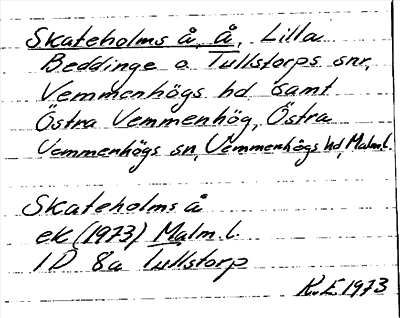 Skateholms å, å, Lilla
Beddinge o. Tullstorps snr,
Vemmenhögs hd samt
Östra Vemmenhög, Östra
Vemmenhögs sn, Vemmenhögs hd, Malm.l.
Skateholms å
ek (1973) Malm.l.
1D 8a Tullstorp
K.E. 1973